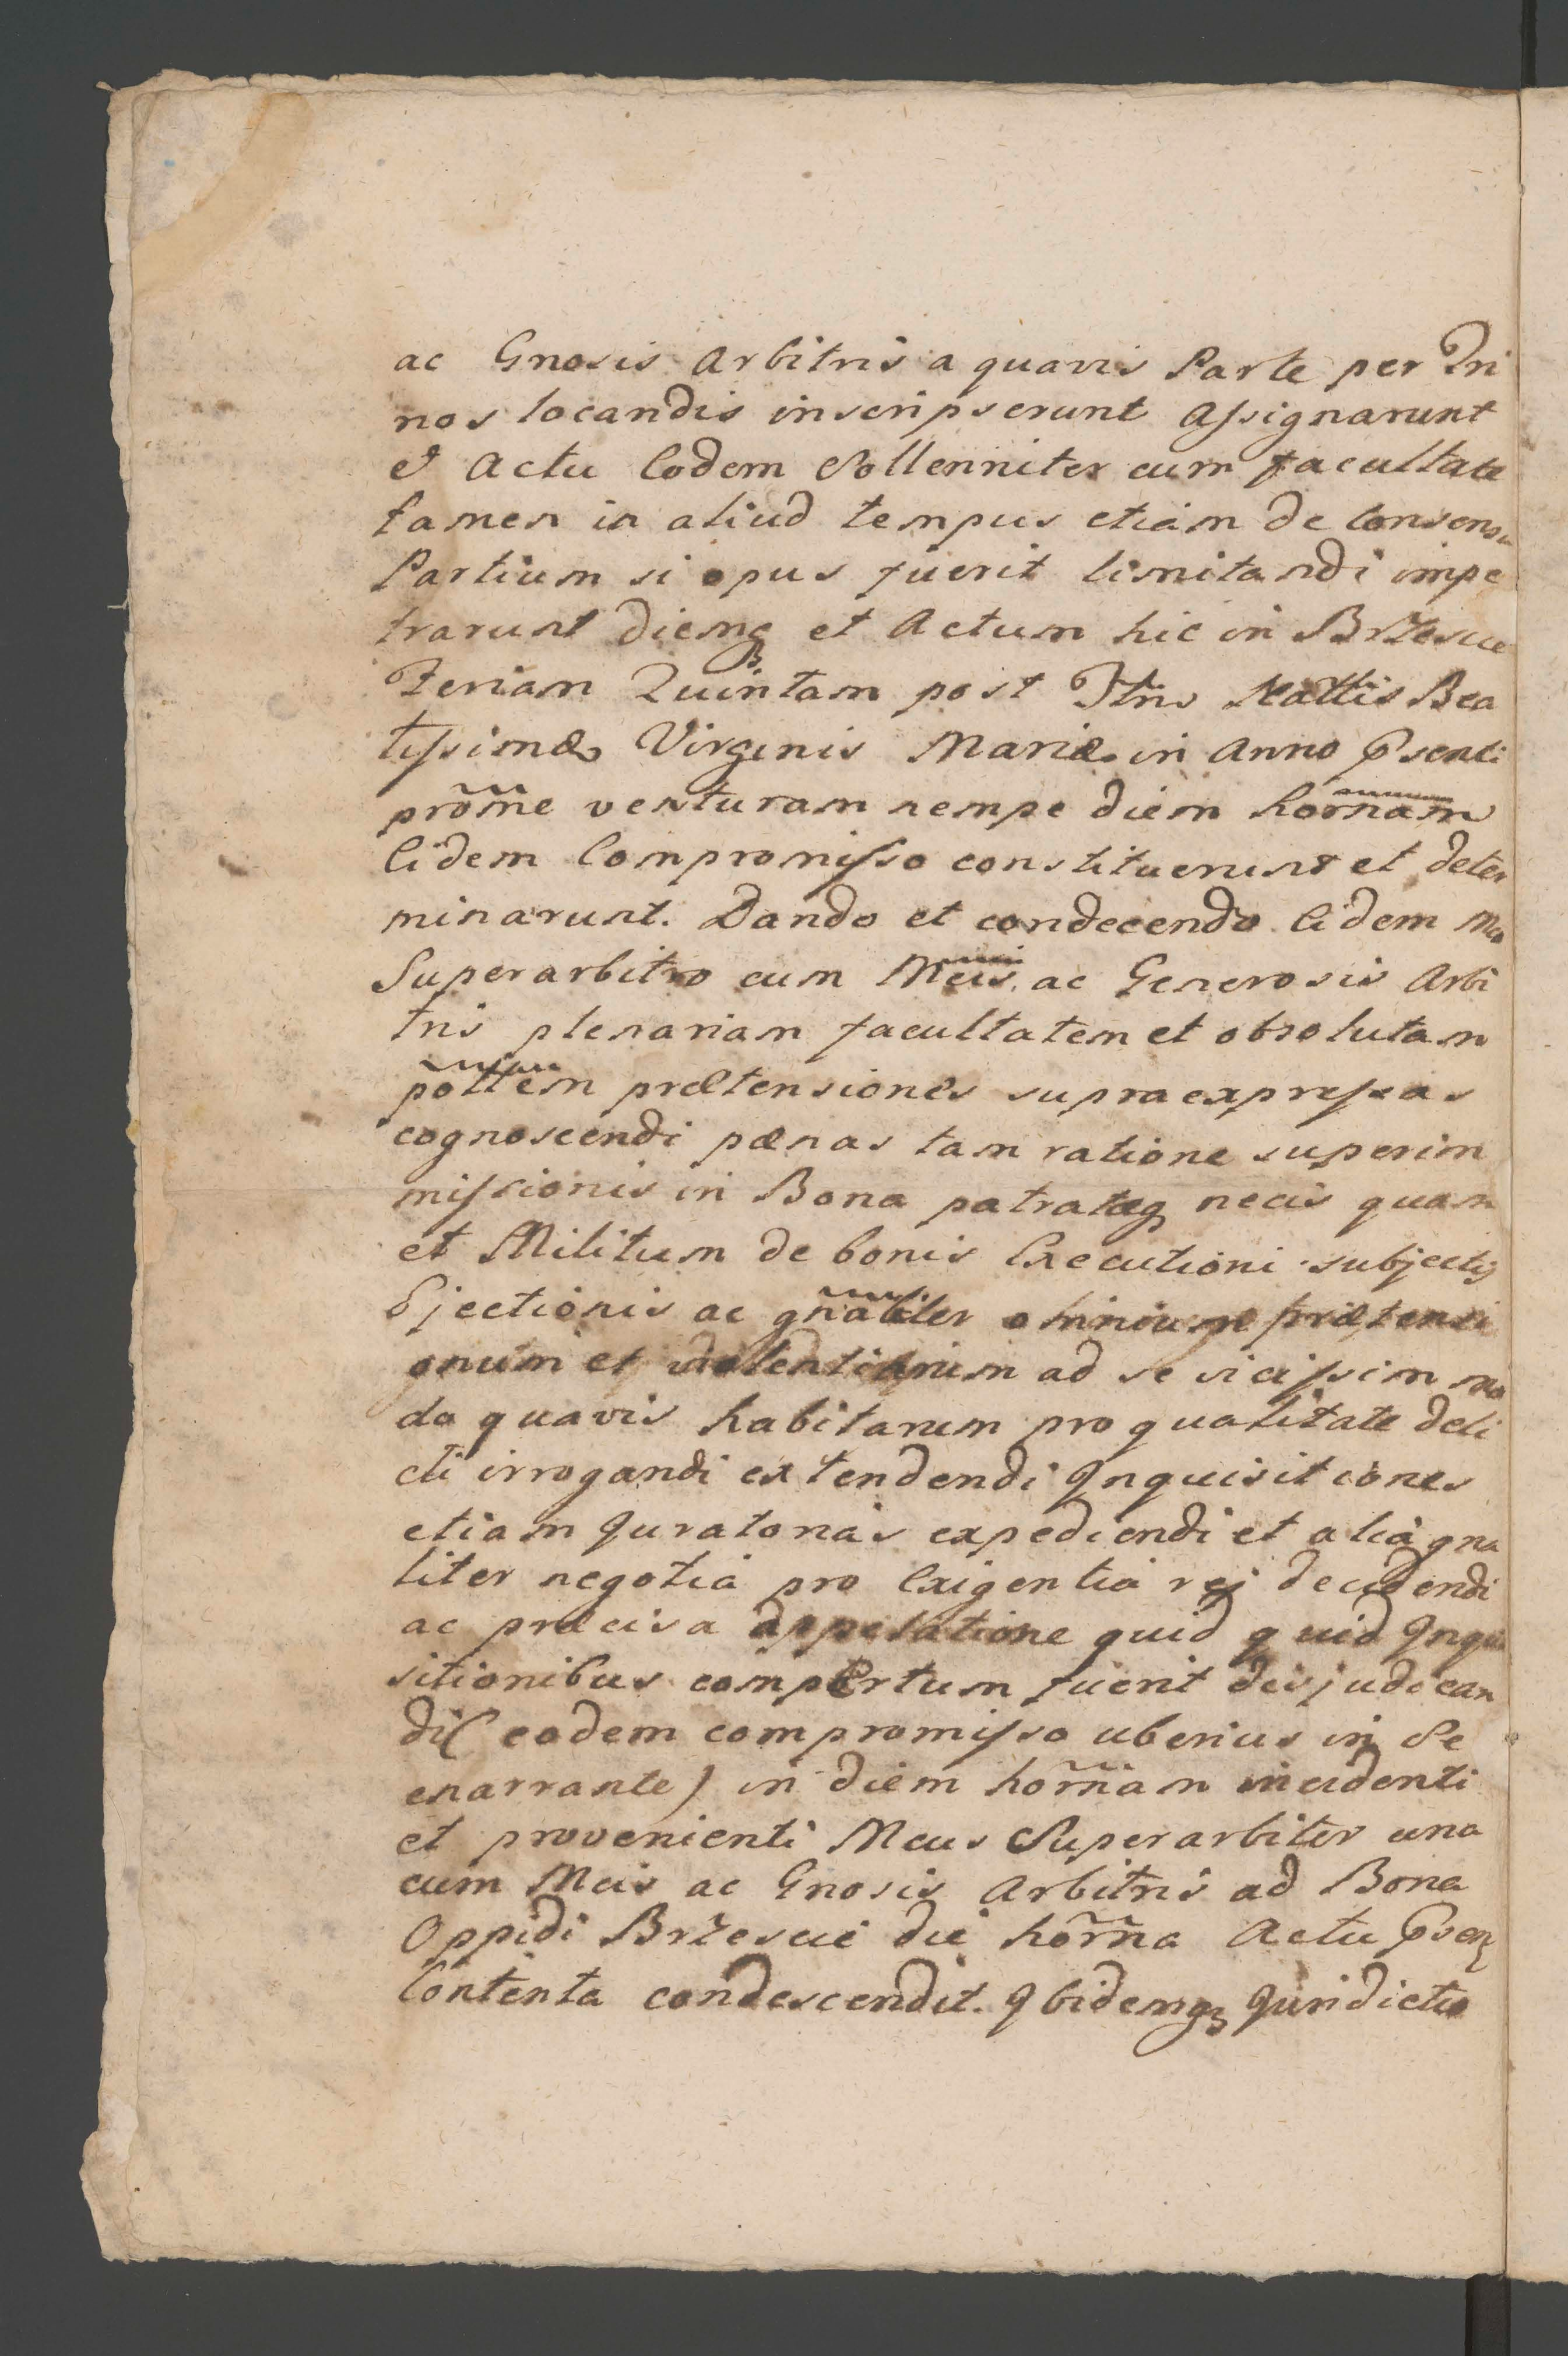 ac Gnosis Arbitris a quavis Parte per Tri
nos locandis inscripserunt Assignarunt
et Actu Eodem Sollenniter cum facultate
tamen in aliud tempus etiam de Consensu
Partium si opus fuerit limitandi impe
trarunt diemq et Actum hic in Brzescie
Feriam Quintam post Ftm Nattis Bea
tissimæ Virginis Mariæ in Anno pñsenti
proxime venturam nempe diem hornam
Eidem Compromisso constituerunt et deter
minarunt. Dando et condecendo Eidem Mco
Superarbitro cum Mcis ac Generosis Arbi
tris plenariam facultatem et obsolutam
pottem prætensiones supra expressas
cognoscendi pænas tam ratione superim
missionis in Bona patratæq necis quam
et Militum de bonis Executioni subjectis
Ejectionis ac gnaliter omnium prætensi
onum et violentiarum ad se vicissim mo
do quavis habitarum pro qualitate deli
cti irrogandi extendendi Inquisitiones
etiam Juratorias expediendi et alia gna
liter negotia pro Exigentia rej decidendi
ac præcisa appelatione quid quid Inqui
sitionibus compertum fuerit disjudican
di( eodem compromisso uberius in Se
enarrante) in diem hornam incidenti
et provenienti Mcus Superarbiter una
cum Mcis ac Gnosis Arbitris ad Bona
Oppidi Brzescie die horna Actu pñsen
Contenta condescendit. Ibidemq Juridictio